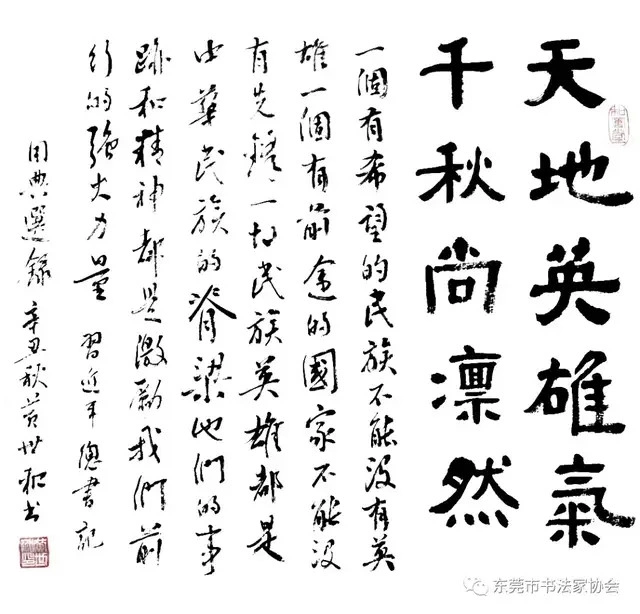 天地英雄氣
千秋尚凛然
一個有希望的民族不能没有英
雄一個有前途的國家不能没
有先鋒一切民族英雄都是
中華民族的脊梁他們的事
跡和精神都是激勵我們前
行的强大力量 習近平總書記
用典選錄 辛丑秋 世和書
东莞市书法家协会